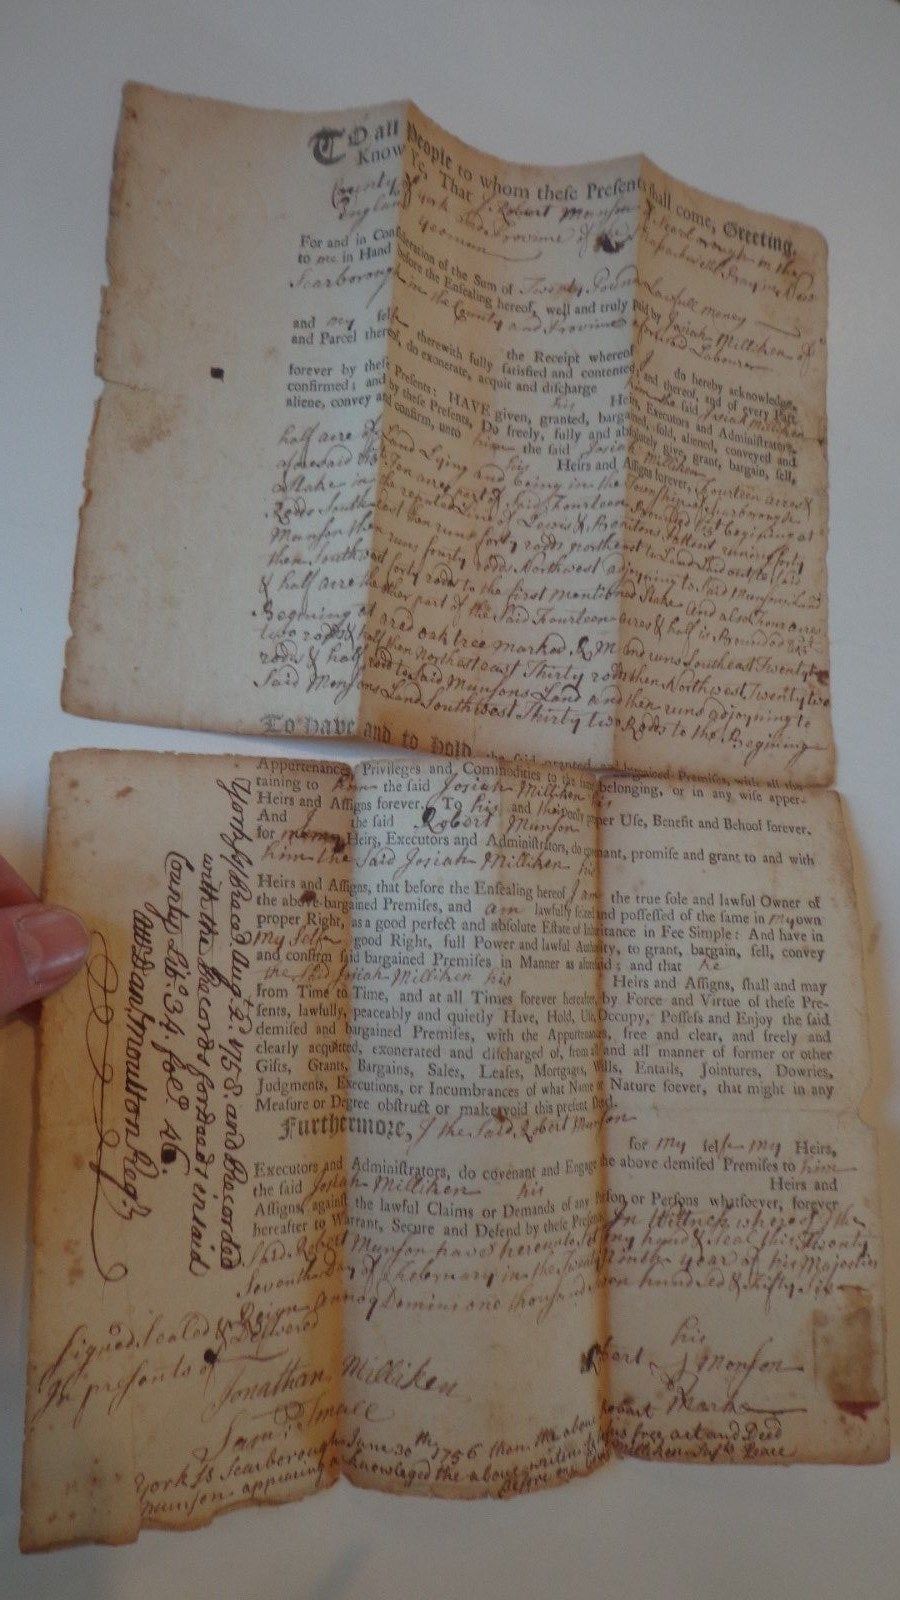 TO all People to whom these Presents shall come, Greeting,
Know Ye, That I Robert Munson of Scarborough in the
County of York and Province of the Massachusetts Bay in New
England Yeoman
For and in Consideration of the Sum of Twenty Pounds Lawfull money
to me in Hand before the Ensealing hereof, well and truly Paid by Josiah Milliken of
Scarborough in the County and Province aforesaid Labourer
the Receipt whereof I do hereby acknowledge,
and my self therewith fully satisfied and contented and thereof, and of every Part
and Parcel thereof, do exonerate, acquit and discharge him the said Josiah Milliken
his Heirs, Executors and Administrators,
forever by these Presents: HAVE given, granted, bargained, sold, aliened, conveyed and
confirmed; and by these Presents, Do freely, fully and absolutely give, grant, bargain, sell,
aliene, convey and confirm, unto him the said Josiah Milliken
his Heirs and Assigns forever, Fourteen acres &
half acre of Land Lying and being in the Township of Scarborough
aforesaid Ten acres part of Said Fourteen Begining at
a Stake in the runing forty
Rods Southeast then runs forty rods northeast to Land Laid out to said
Munson then runs fourty rods Northwest adjoyning to Said Munsons Land
then Southwest forty rods to the first mentioned Stake and also four acres
& half acre the other part of the Said Fourteen acres & half is Bounded as
Begining at a red oak tree marked R M and runs Southeast Twenty
two rods & half then Northeast Thirty rods then Northwest Twenty two
rods & half rod to Said Munsons Land and then runs adjoyning to
Said Munsons Land Southwest Thirty two Rods to the Begining
To have and to hold the said granted and bargained Premises, with all the
Appurtenances, Privileges and Commodities to the same belonging, or in any wise apper-
taining to him the said Josiah Milliken his
Heirs and Assigns forever. To his and their only proper Use, Benefit and Behoof forever.
And I the said Robert Munson
for me my Heirs, Executors and Administrators, do covenant, promise and grant to and with
him the Said Josiah Milliken his
Heirs and Assigns, that before the Ensealing hereof I am the true sole and lawful Owner of
the above-bargained Premises, and am lawfully seized and possessed of the same in my own
proper Right, as a good perfect and absolute Estate of Inheritance in Fee Simple: And have in
my self good Right, full Power and lawful Authority, to grant, bargain, sell, convey
and confirm said bargained Premises in Manner as aforesaid; and that he
the said Josiah Milliken his Heirs and Assigns, shall and may
from Time to Time, and at all Times forever hereafter, by Force and Virtue of these Pre-
sents, lawfully, peaceably and quietly Have, Hold, Use, Occupy, Possess and Enjoy the said
demised and bargained Premises, with the Appurtenances, free and clear, and freely and
clearly acquitted, exonerated and discharged of, from all and all manner of former or other
Gifts, Grants, Bargains, Sales, Leases, Mortgages, Wills, Entails, Jointures, Dowries,
Judgments, Executions, or Incumbrances of what Name or Nature soever, that might in any
Measure or Degree obstruct or make void this present Deed.
Furthermore, I the Said Robert Munson
for my self my Heirs,
Executors and Administrators, do covenant and Engage the above demised Premises to him
the said Josiah Milliken his Heirs and
Assigns, against the lawful Claims or Demands of any Person or Persons whatsoever, forever
hereafter to Warrant, Secure and Defend by these Presents In Witness whereof I the
Said Robert Munson have hereunto Set my hand & Seal this Twenty
Seventh Day of February in the Twenty Ninth year of his Majesties
Reign Annoq Domini one thousand seven hundred & fifty six
Signed Sealed & Delivered
In presents of
Jonathan Milliken
Sam:ll Small
his
Robert Munson
Marke
York ss Scarborough June 30th 1756 then the above Robart
Munson appearing acknowledged the above writen to be his free act and Deed
Before me Milliken Jus:t Peace
York ss Rec'd Aug.t 2. 1758. and Recorded
with the Records for Deeds in said
County Lib.o 34. fol.o 46.
Att. Dan.l Moulton Reg.r